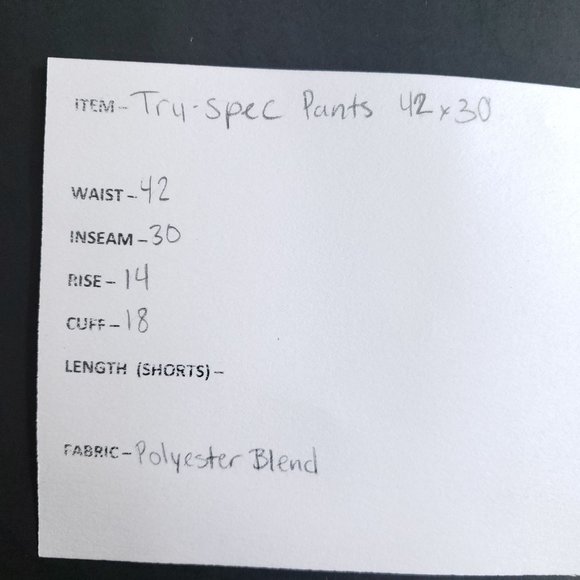 ITEM - Try-Spec Pants 42x30
WAIST - 42
INSEAM - 30
RISE - 14
CUFF - 18
LENGTH (SHORTS) -
FABRIC - Polyester Blend